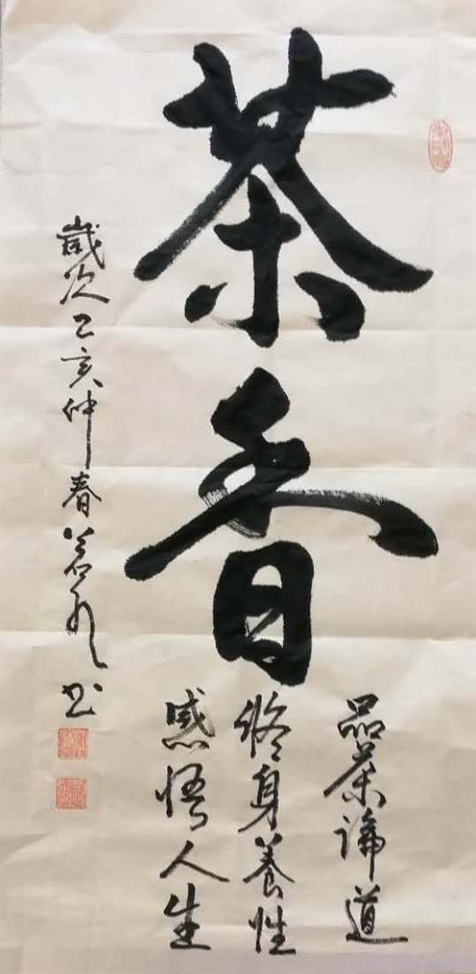 茶香
品茶論道
修身養性
感悟人生
歲次己亥仲春 书